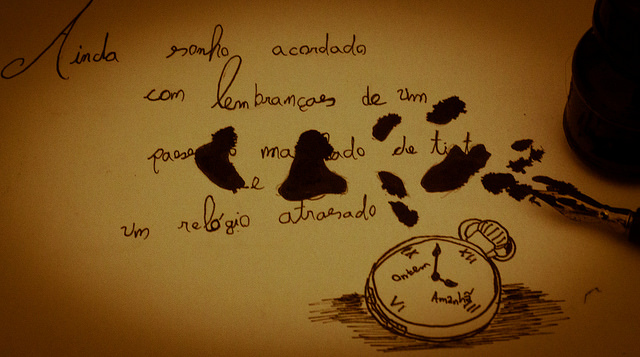 Ainda sonho acordado
com lembranças de um
de
e
um relógio atrasado
IX XII
Ontem
Amanhã
VI III